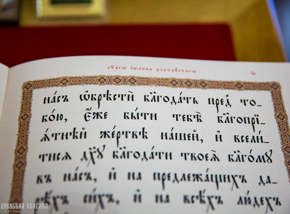 насъ ѡ҆брѣсти́ бл҃года́ть пред̾ то-
бо́ю, є҆́же бы́ти тебѣ̀ бл҃гопрї-
ѧ́тнѣй же́ртвѣ на́шей, и҆ всели́-
тисѧ дх҃ꙋ бл҃года́ти твоеѧ̀ бл҃го́мꙋ
въ на́съ, и҆ на предлежа́щихъ да-
рѣ́хъ си́хъ, и҆ на всѣ́хъ лю́дехъ